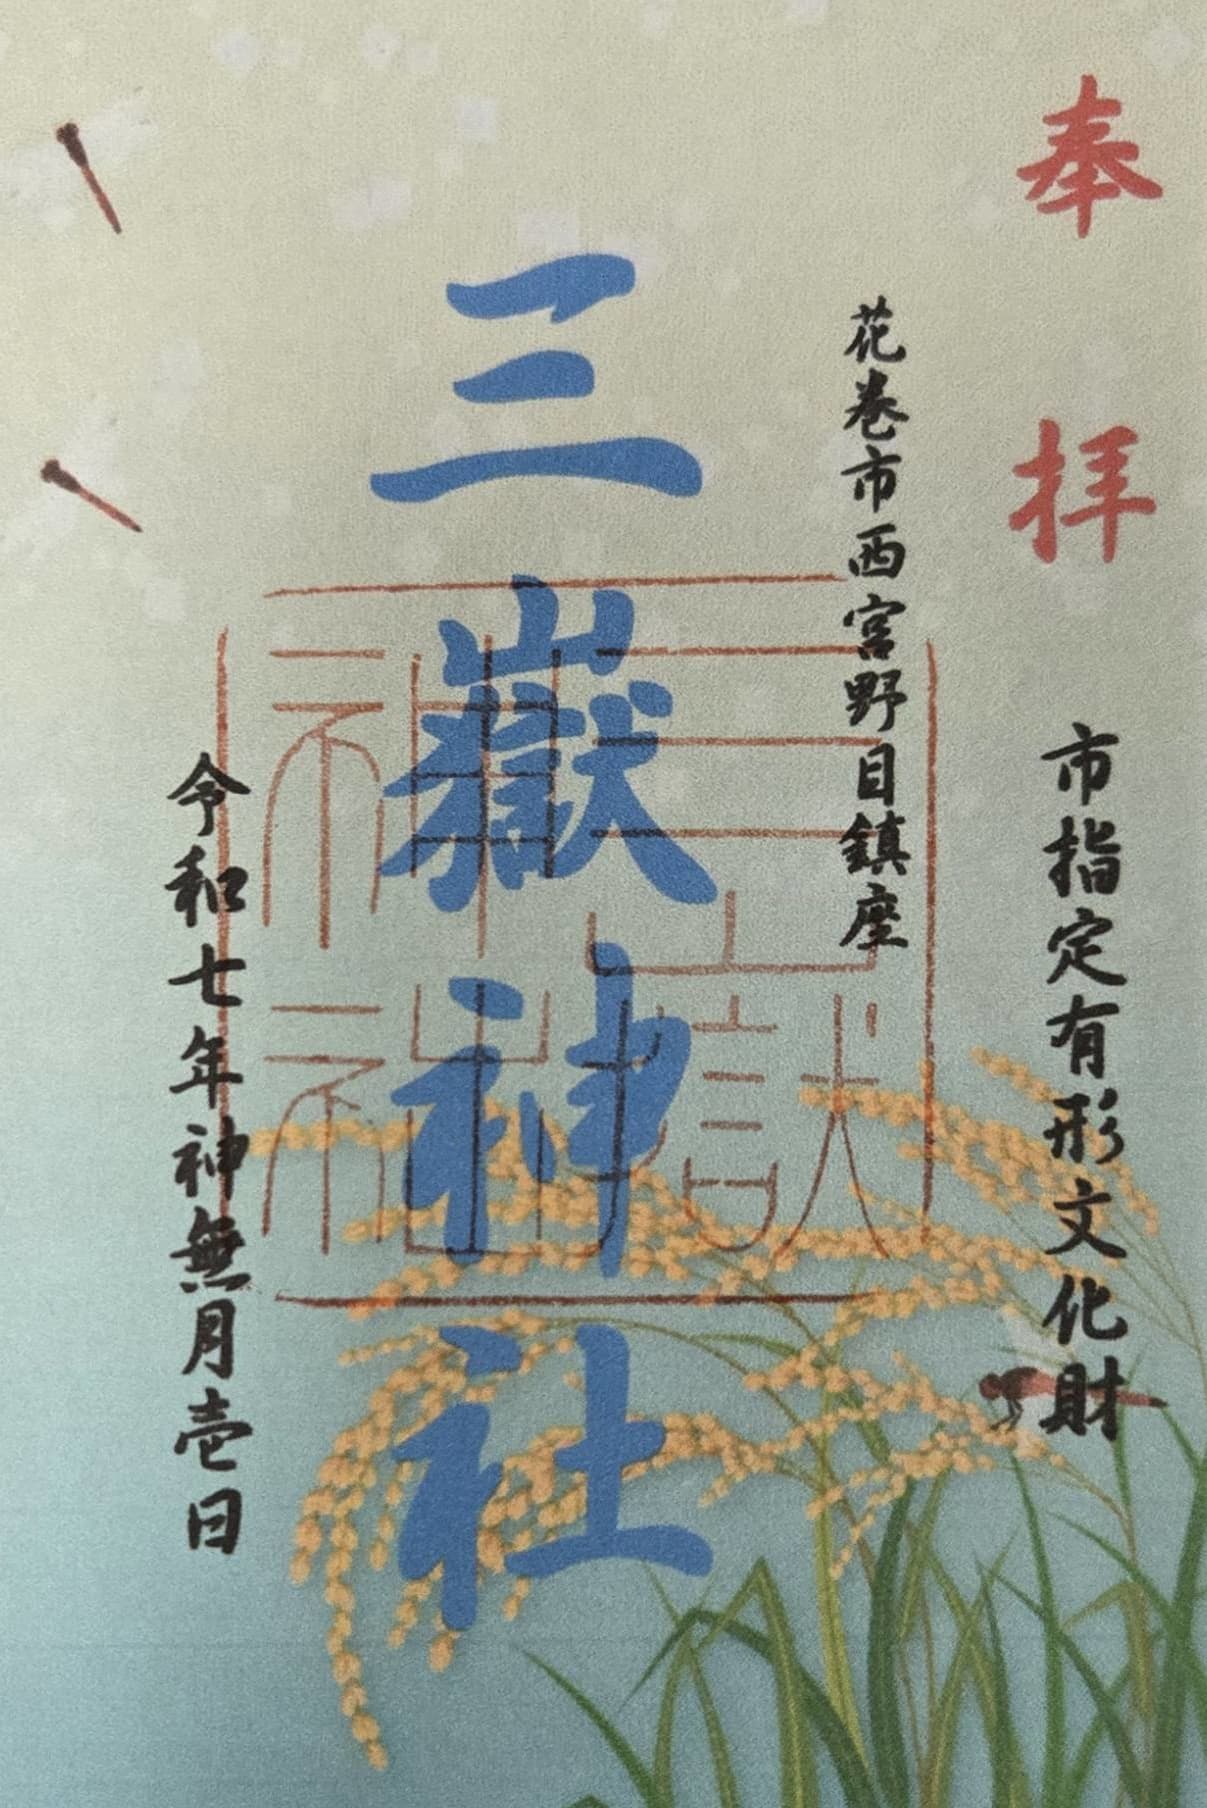 奉拝
市指定有形文化財
花巻市西宮野目鎮座
三嶽神社
三嶽神社
令和七年神無月壱日